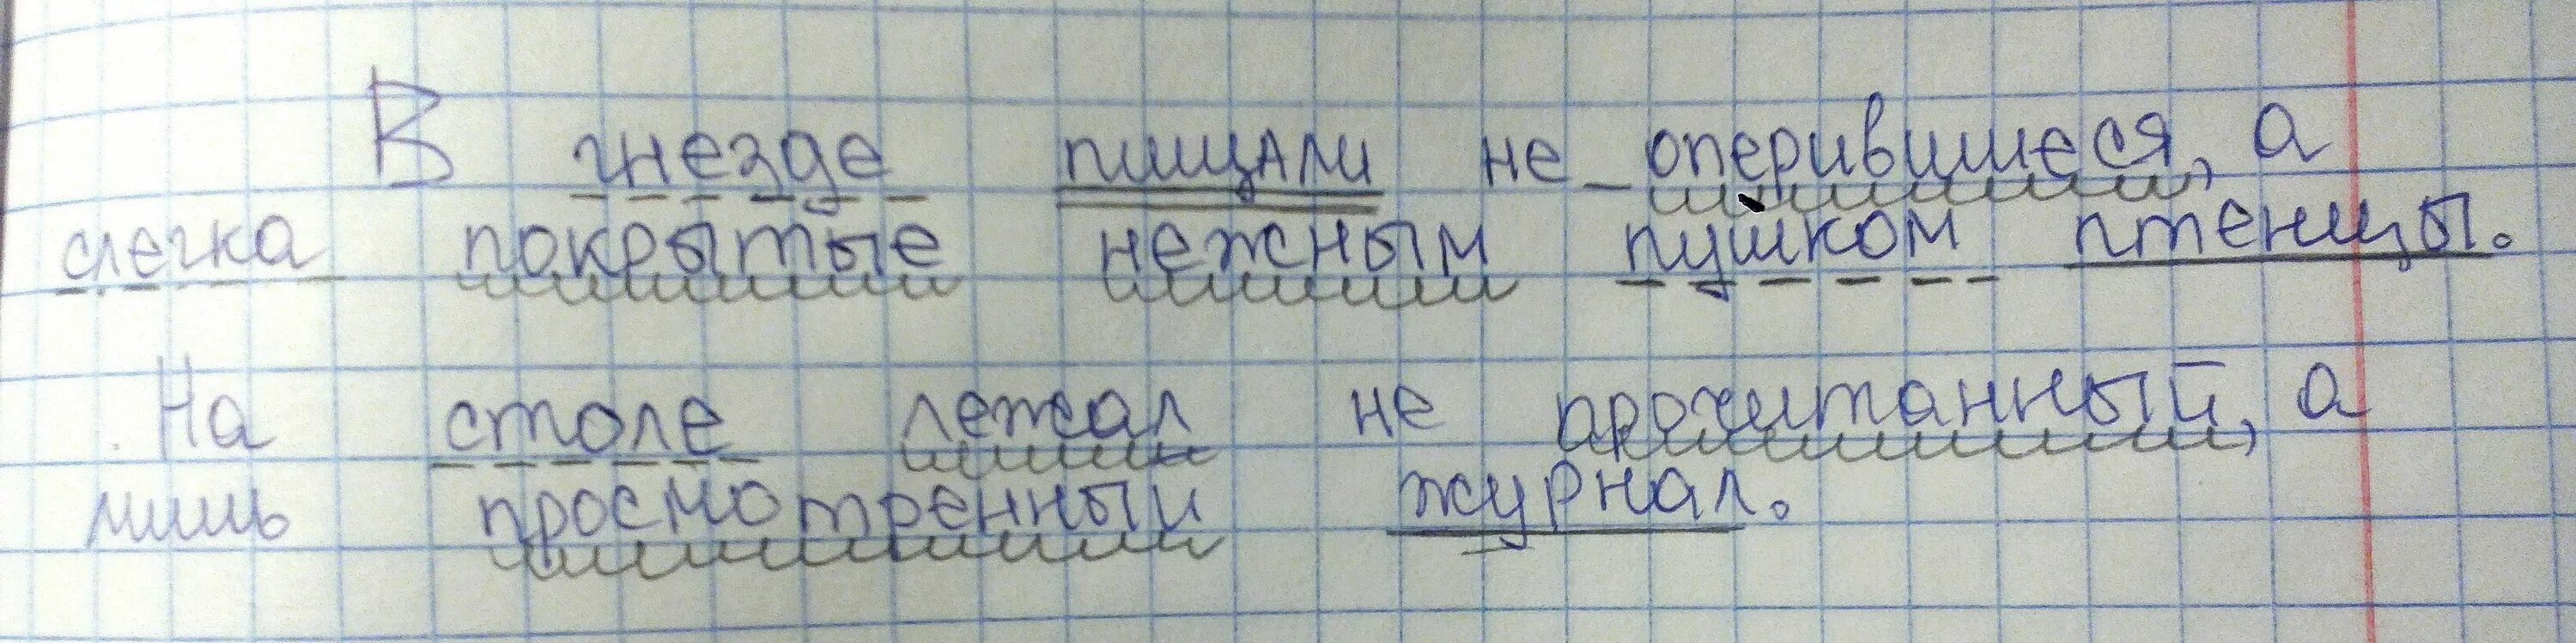 В гнезде пищали не оперившиеся, а
слегка покрытые нежным пушком птенцы.
На столе лежал не прочитанный, а
лишь просмотренный журнал.